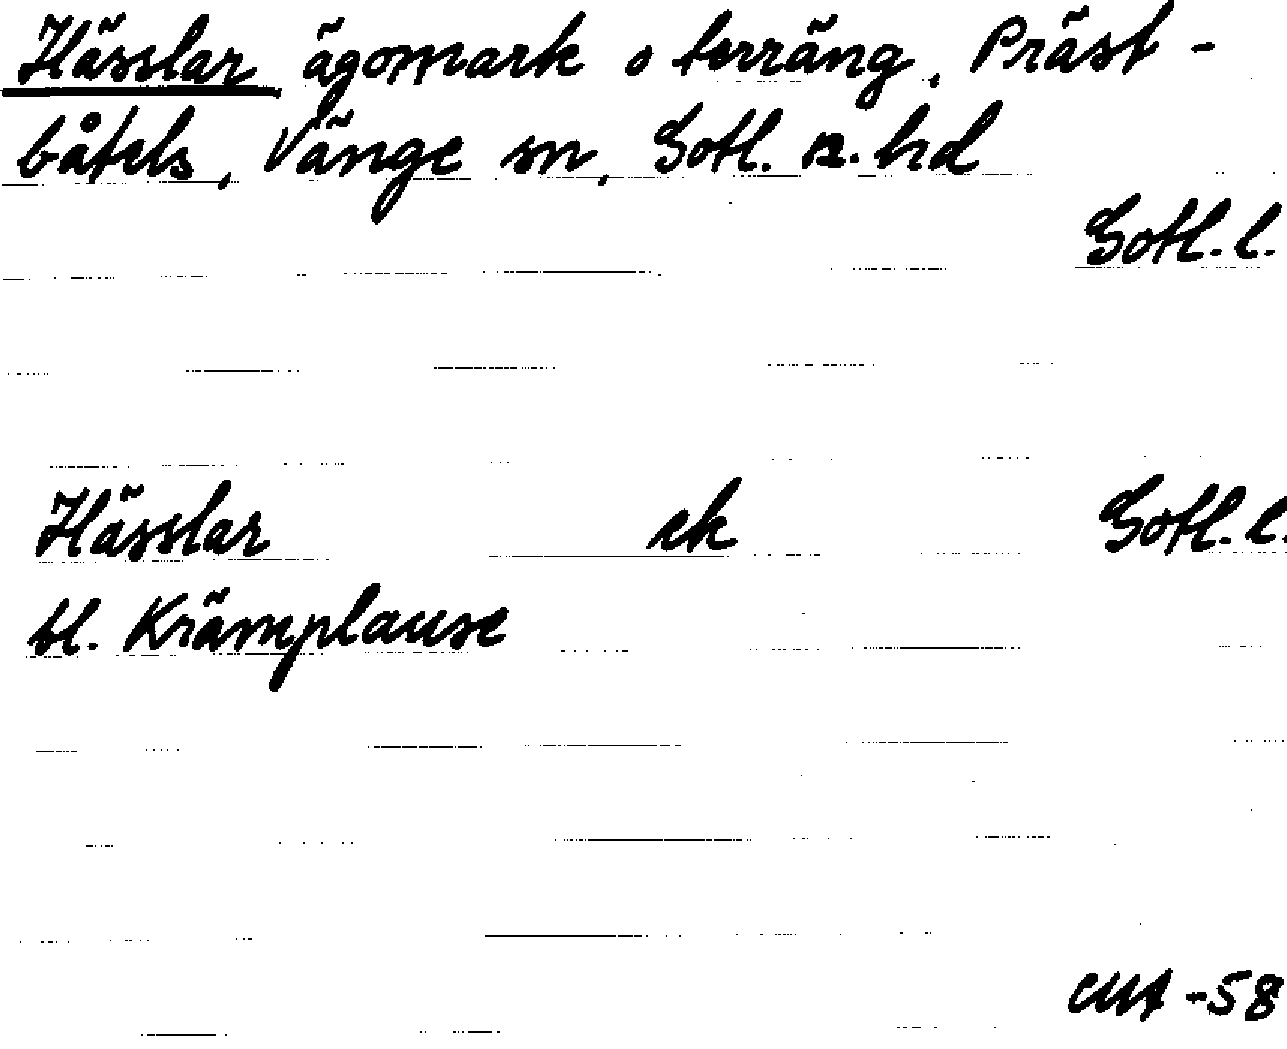 Hässlar ägomark o terräng, Präst-
båtels, Vänge sn, Gotl. n. hd
Gotl. l.
Hässlar ek Gotl. l.
bl. Krämplause
CMA -58